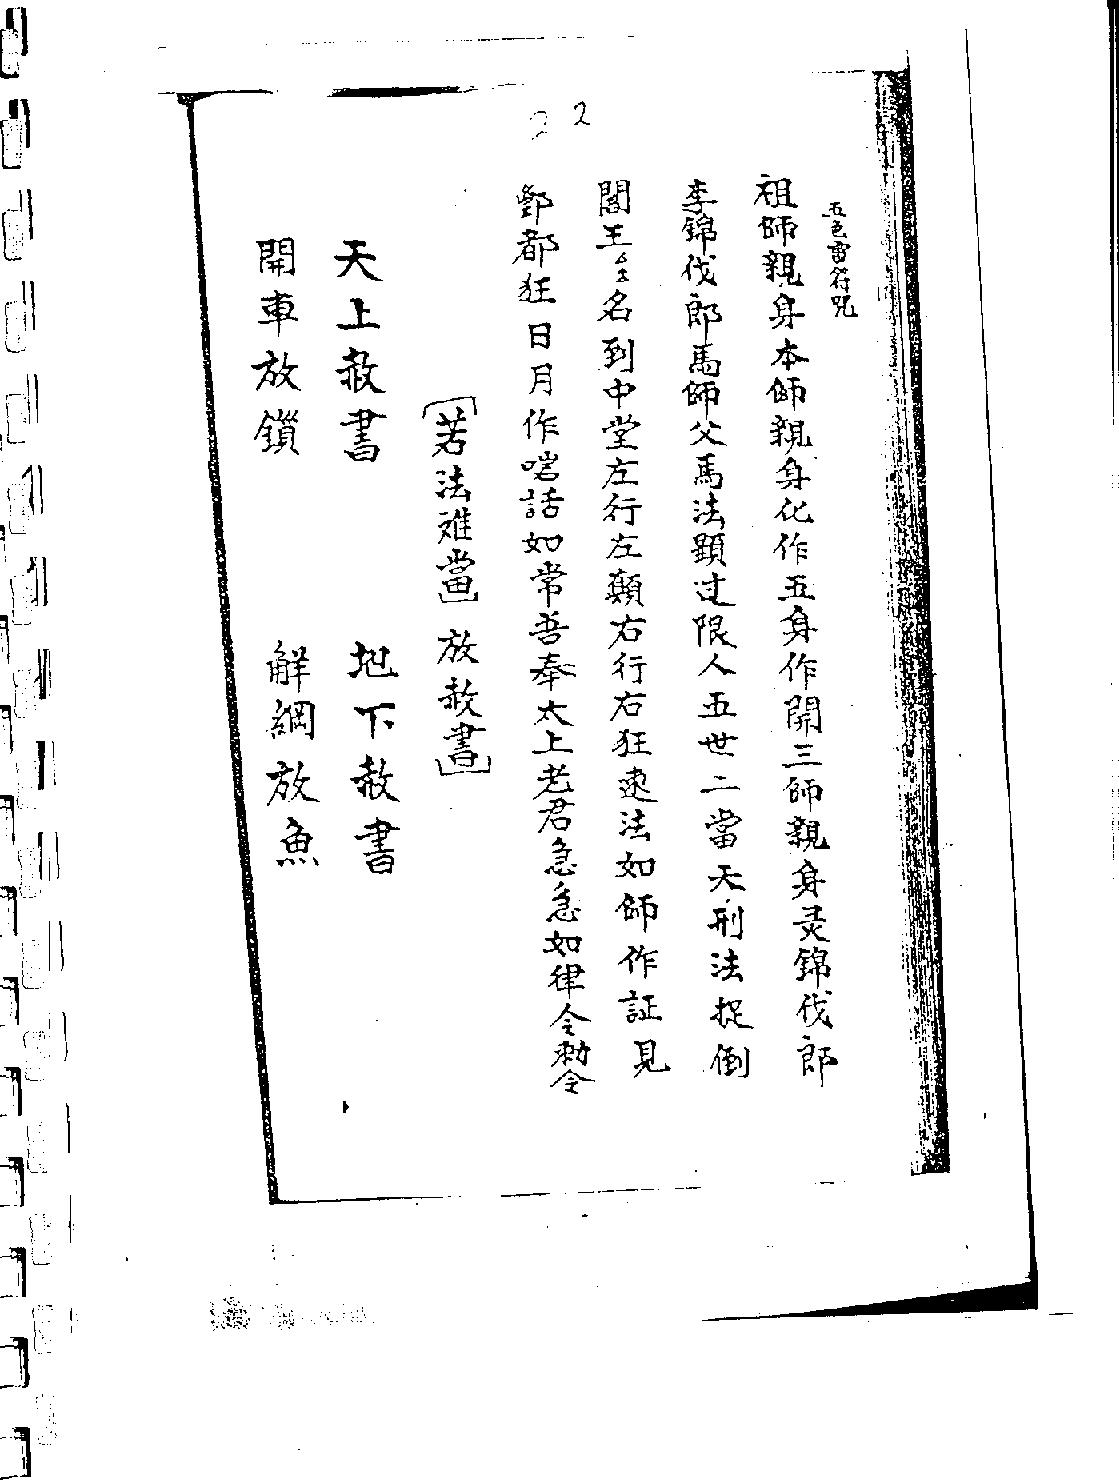 22
五色雷符咒
祖師親身本師親身化作五身作開三師親身灵錦伐郎
李錦伐郎馬師父馬法顕过限人五世二當天刑法捉倒
閻王名到中堂左行左顛右行右狂速法如師作証見
酆都狂日月作喏話如常善奉太上老君急急如律令勅令
[若法难當] 放赦書]
天上赦書 地下赦書
開車放鎖 解網放魚